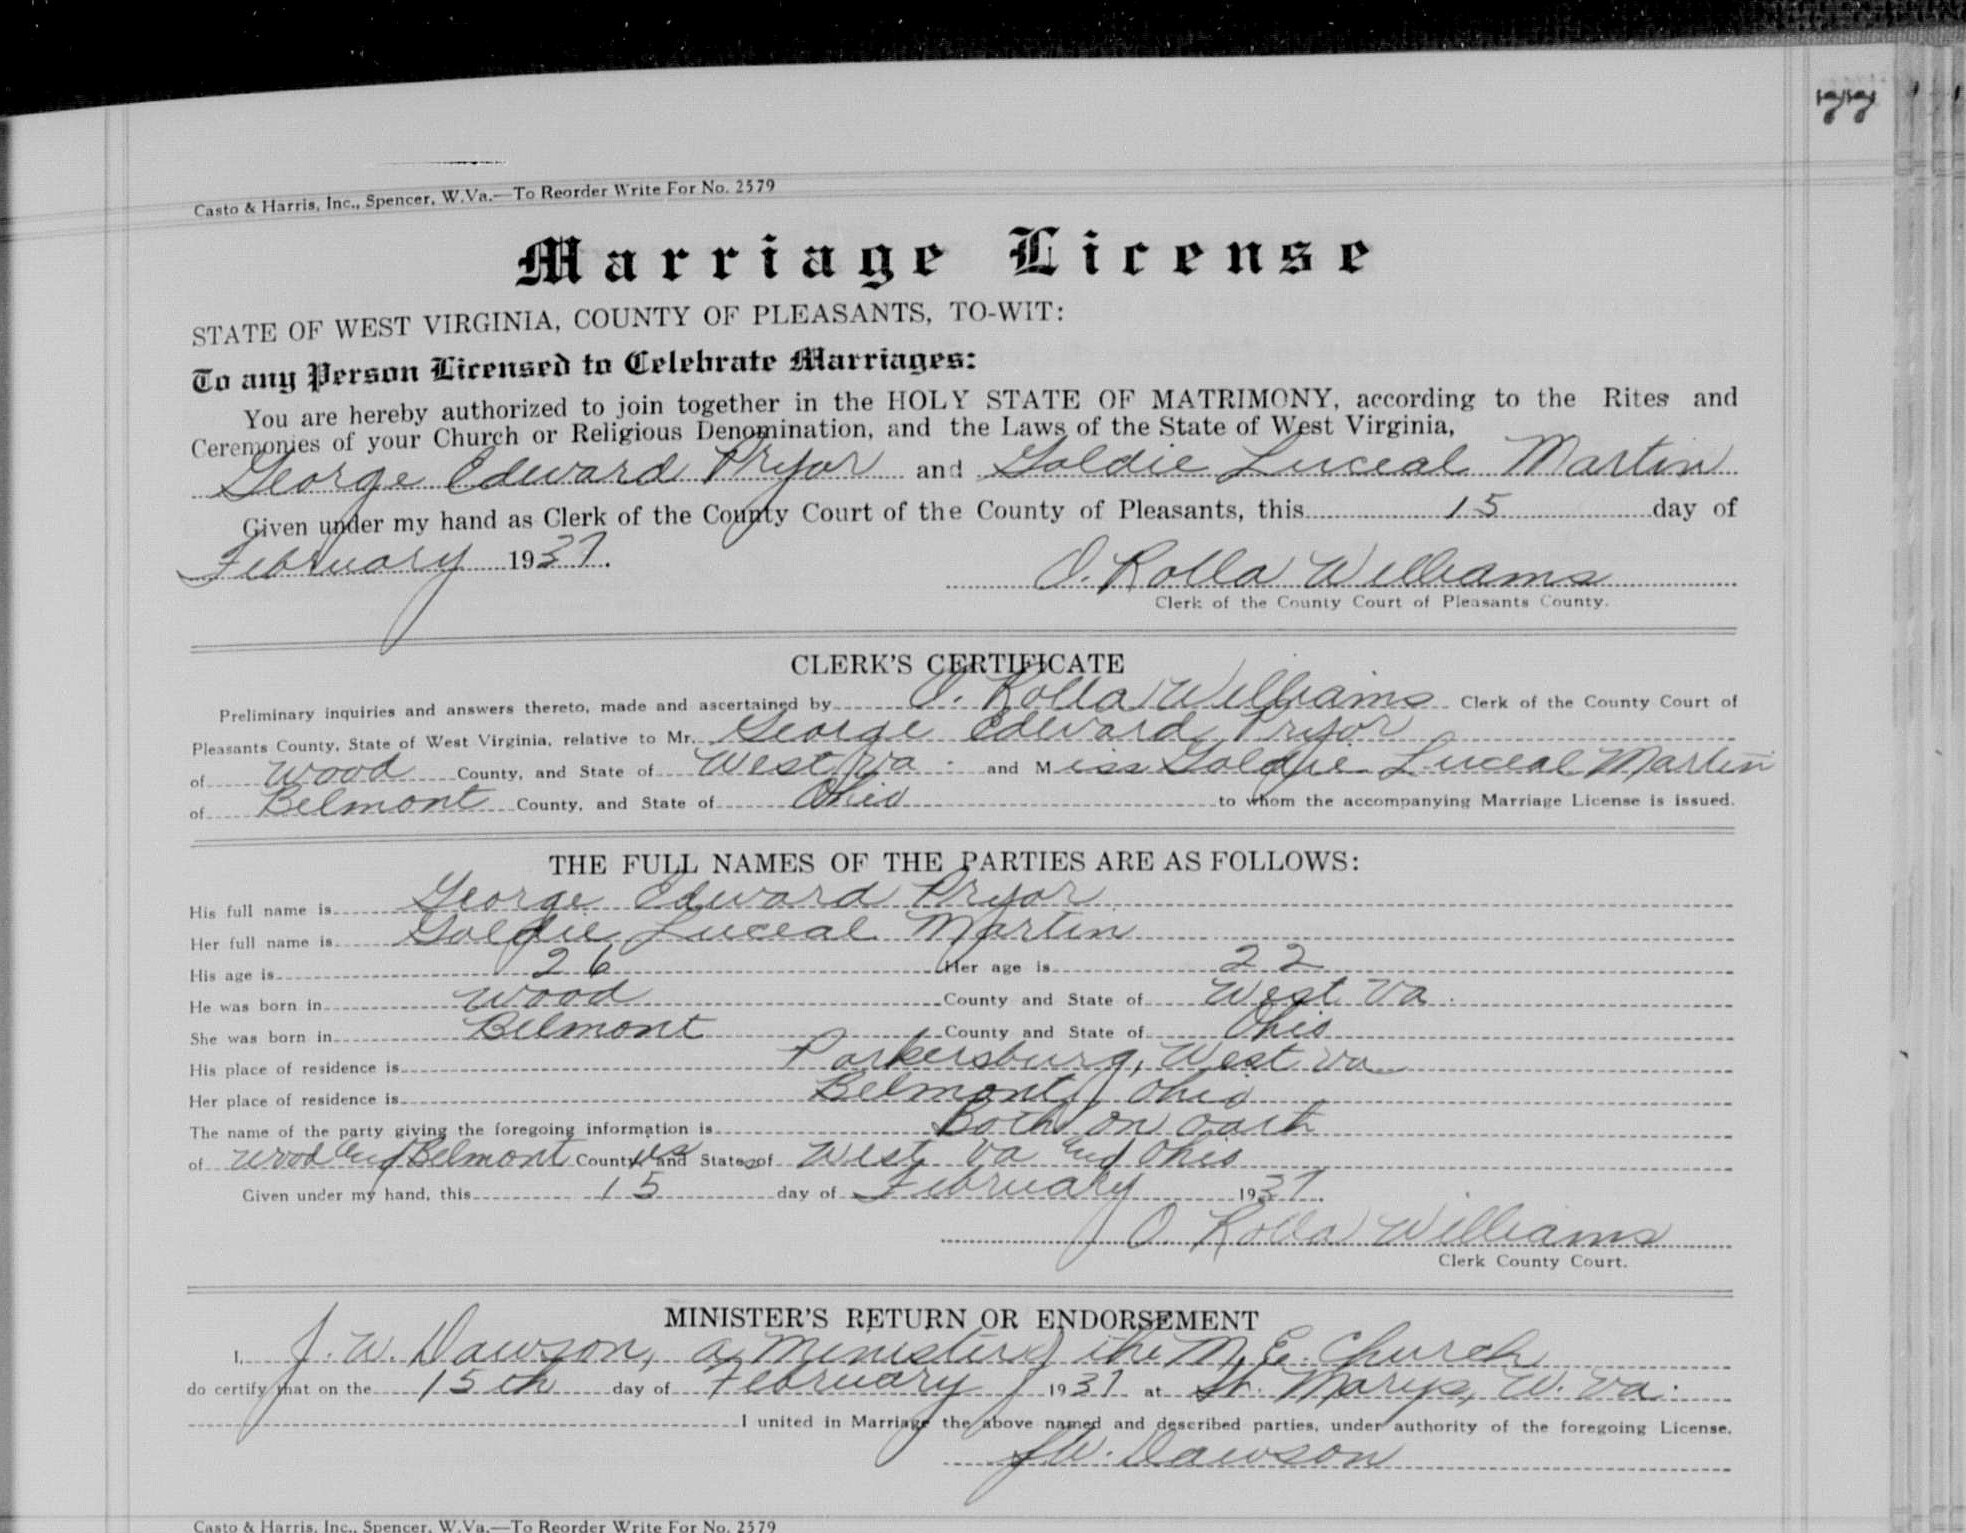 Casto & Harris, Inc., Spencer, W.Va.—To Reorder Write For No. 2579
Marriage License
STATE OF WEST VIRGINIA, COUNTY OF PLEASANTS, TO-WIT:
To any Person Licensed to Celebrate Marriages:
You are hereby authorized to join together in the HOLY STATE OF MATRIMONY, according to the Rites and
Ceremonies of your Church or Religious Denomination, and the Laws of the State of West Virginia,
George Edward Pryor and Goldie Luceal Martin
Given under my hand as Clerk of the County Court of the County of Pleasants, this 15 day of
February 1937.
O. Rolla Williams
Clerk of the County Court of Pleasants County.
CLERK'S CERTIFICATE
Preliminary inquiries and answers thereto, made and ascertained by O. Rolla Williams Clerk of the County Court of
Pleasants County, State of West Virginia, relative to Mr. George Edward Pryor
of Wood County, and State of West Va. and Miss Goldie Luceal Martin
of Belmont County, and State of Ohio to whom the accompanying Marriage License is issued.
THE FULL NAMES OF THE PARTIES ARE AS FOLLOWS:
His full name is George Edward Pryor
Her full name is Goldie Luceal Martin
His age is 26 Her age is 22
He was born in Wood County and State of West Va.
She was born in Belmont County and State of Ohio
His place of residence is Parkersburg, West Va
Her place of residence is Belmont, Ohio
The name of the party giving the foregoing information is Both on oath
of Wood and Belmont County and State of West Va and Ohio
Given under my hand, this 15 day of February 1937.
O. Rolla Williams
Clerk County Court.
MINISTER'S RETURN OR ENDORSEMENT
I, J. W. Dawson, a minister of the M. E. Church
do certify that on the 15th day of February 1937 at St. Marys, W. Va.
I united in Marriage the above named and described parties, under authority of the foregoing License.
J. W. Dawson
Casto & Harris, Inc., Spencer, W.Va.—To Reorder Write For No. 2579